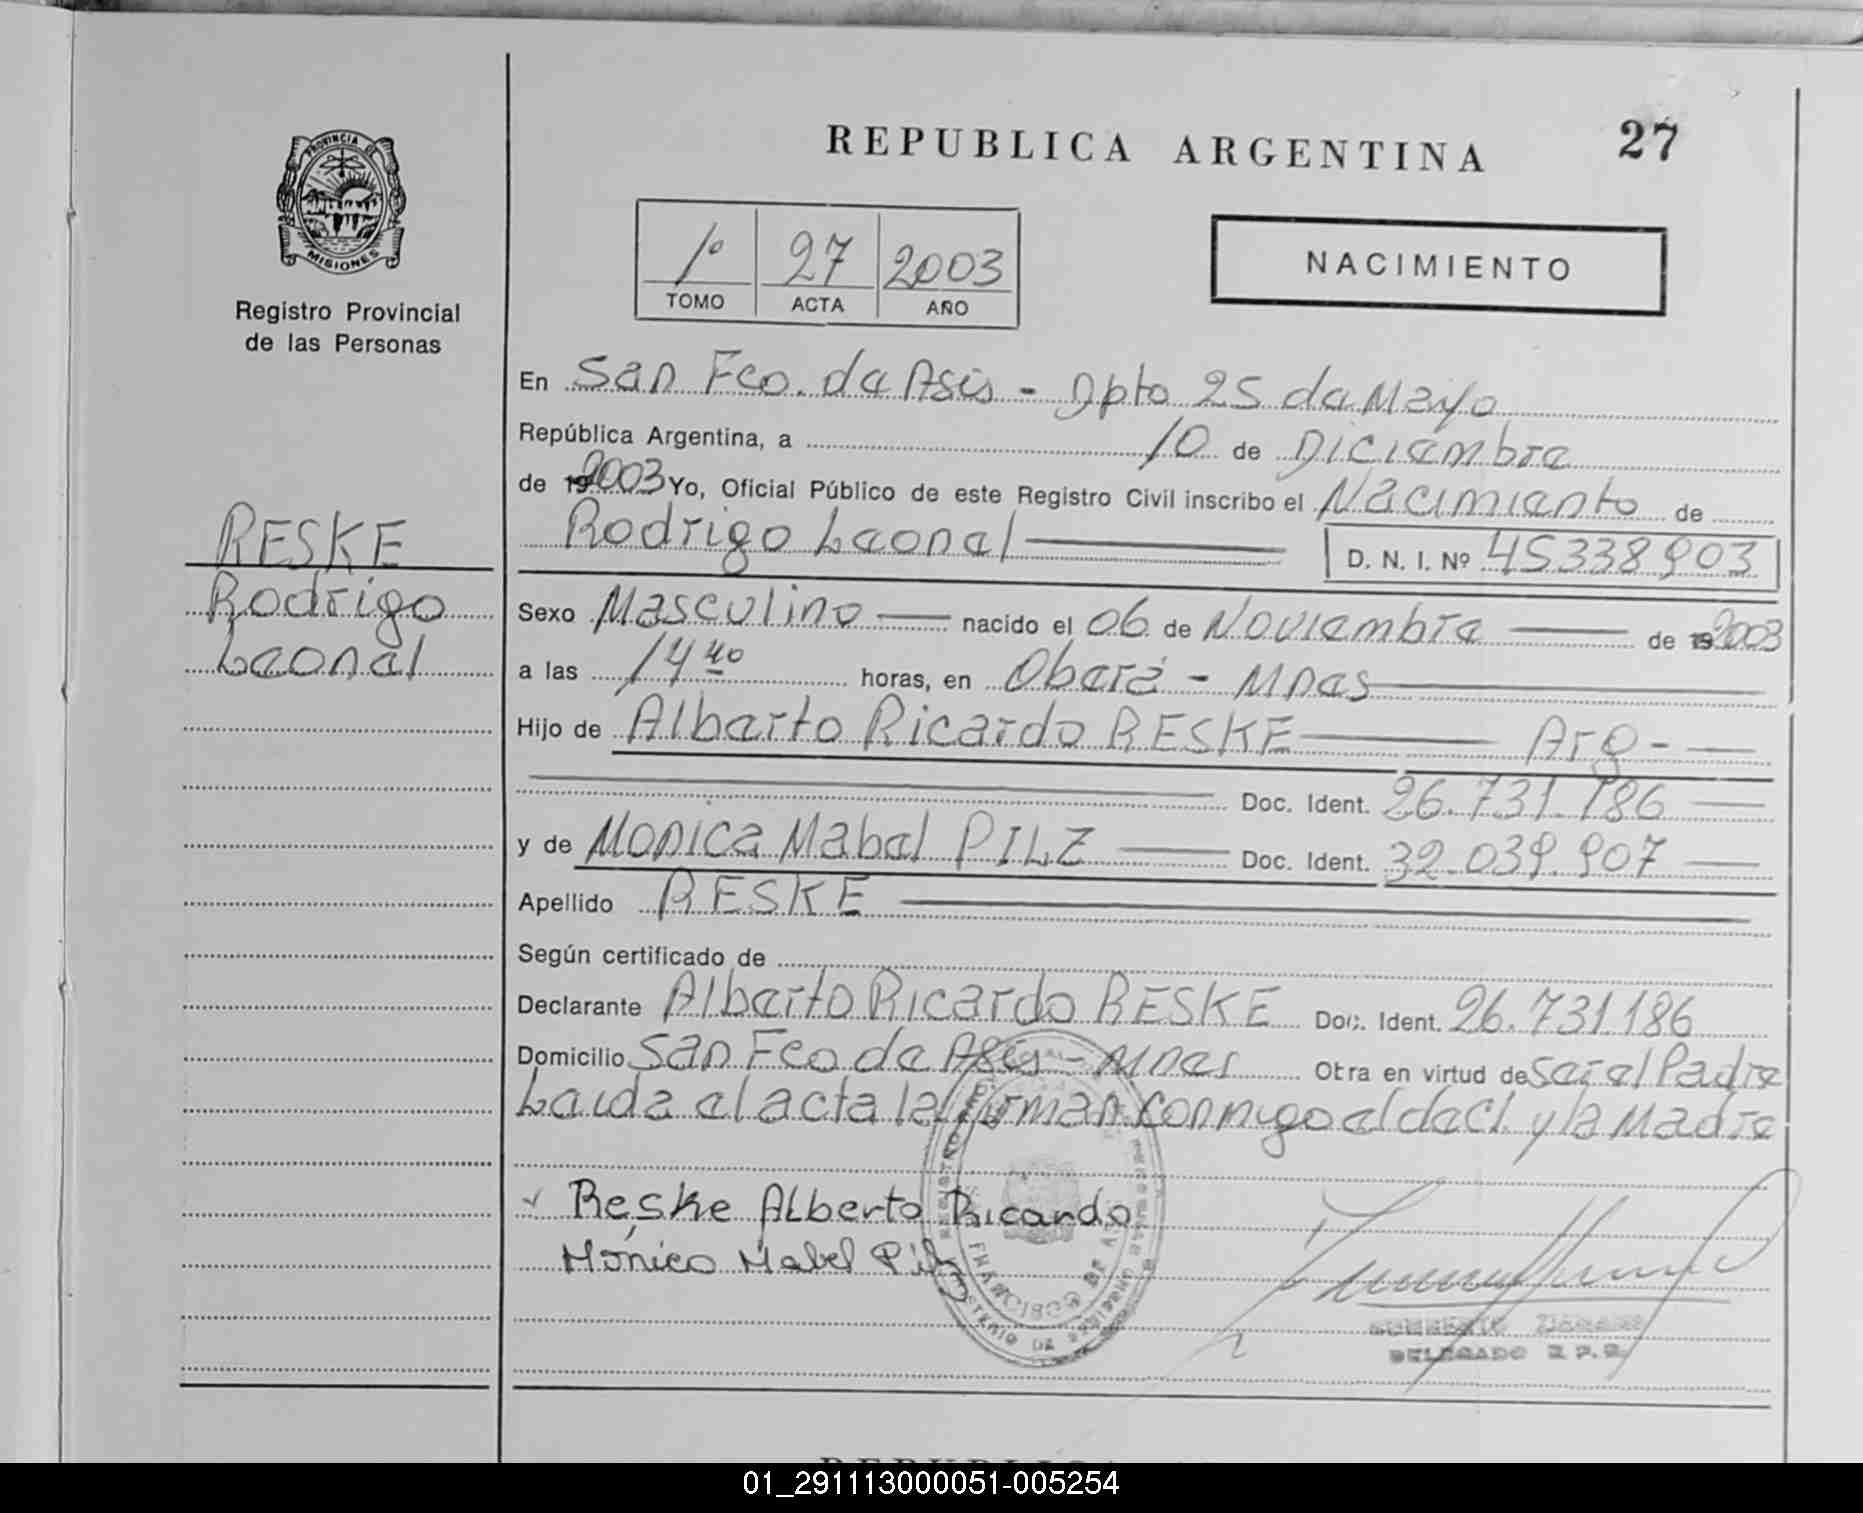 PROVINCIA DE
MISIONES
Registro Provincial
de las Personas
RESKE
Rodrigo
Leonel
REPUBLICA ARGENTINA 27
1º 27 2003
TOMO ACTA AÑO
NACIMIENTO
En San Fco. de Asis - Dpto 25 de Mayo
República Argentina, a 10 de Diciembre
de 192003 Yo, Oficial Público de este Registro Civil inscribo el Nacimiento de
Rodrigo Leonel D. N. I. Nº 45338903
Sexo Masculino nacido el 06 de Noviembre de 192003
a las 14 40 horas, en Oberá - Mnes
Hijo de Alberto Ricardo RESKE Arg -
Doc. Ident. 26.731.186
y de Monica Mabel PILZ Doc. Ident. 32.039.907
Apellido RESKE
Según certificado de
Declarante Alberto Ricardo RESKE Doc. Ident. 26.731.186
Domicilio San Fco de Asis - Mnes Otra en virtud de ser el Padre
Leida el acta la firman conmigo el decl. y la Madre
Reske Alberto Ricardo
Mónica Mabel Pilz
DELEGADO R.P.P.
REPUBLICA
01_291113000051-005254